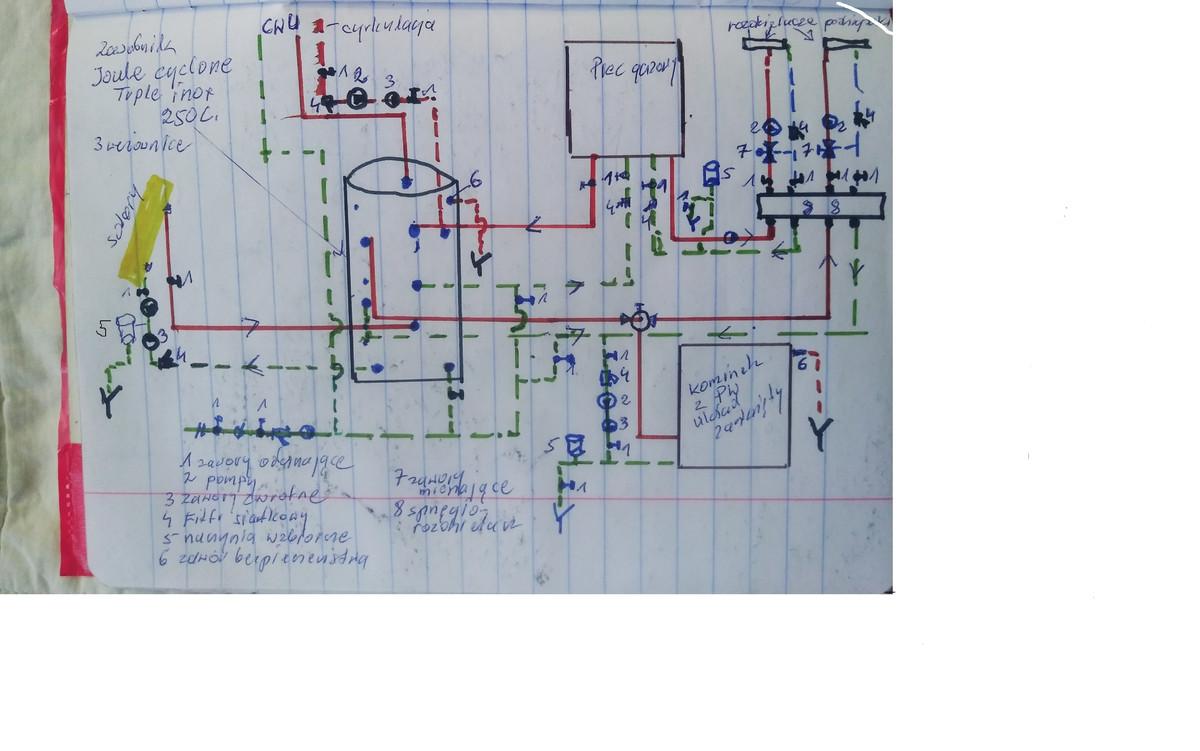 CWU 1 - cyrkulacja
rozdzielacze podłogówki
Zasobnik
Joule cyclone
Triple inox
250 L.
3 wężownice
1 2 3 1
4
Piec gazowy
6
1 1
4 4
1
5
2 2 4
7 7
1 1 1 1
8 8
solary
1
1
5
3
4
1
1
1 1
1
4
2
3
1
5
1
kominek
z PW
układ
zamknięty
6
1 zawory odcinające
2 pompy
3 zawory zwrotne
4 Filtr siatkowy
5 naczynia wzbiorcze
6 zawór bezpieczeństwa
7 zawory
mieszające
8 sprzęgło-
rozdzielacz